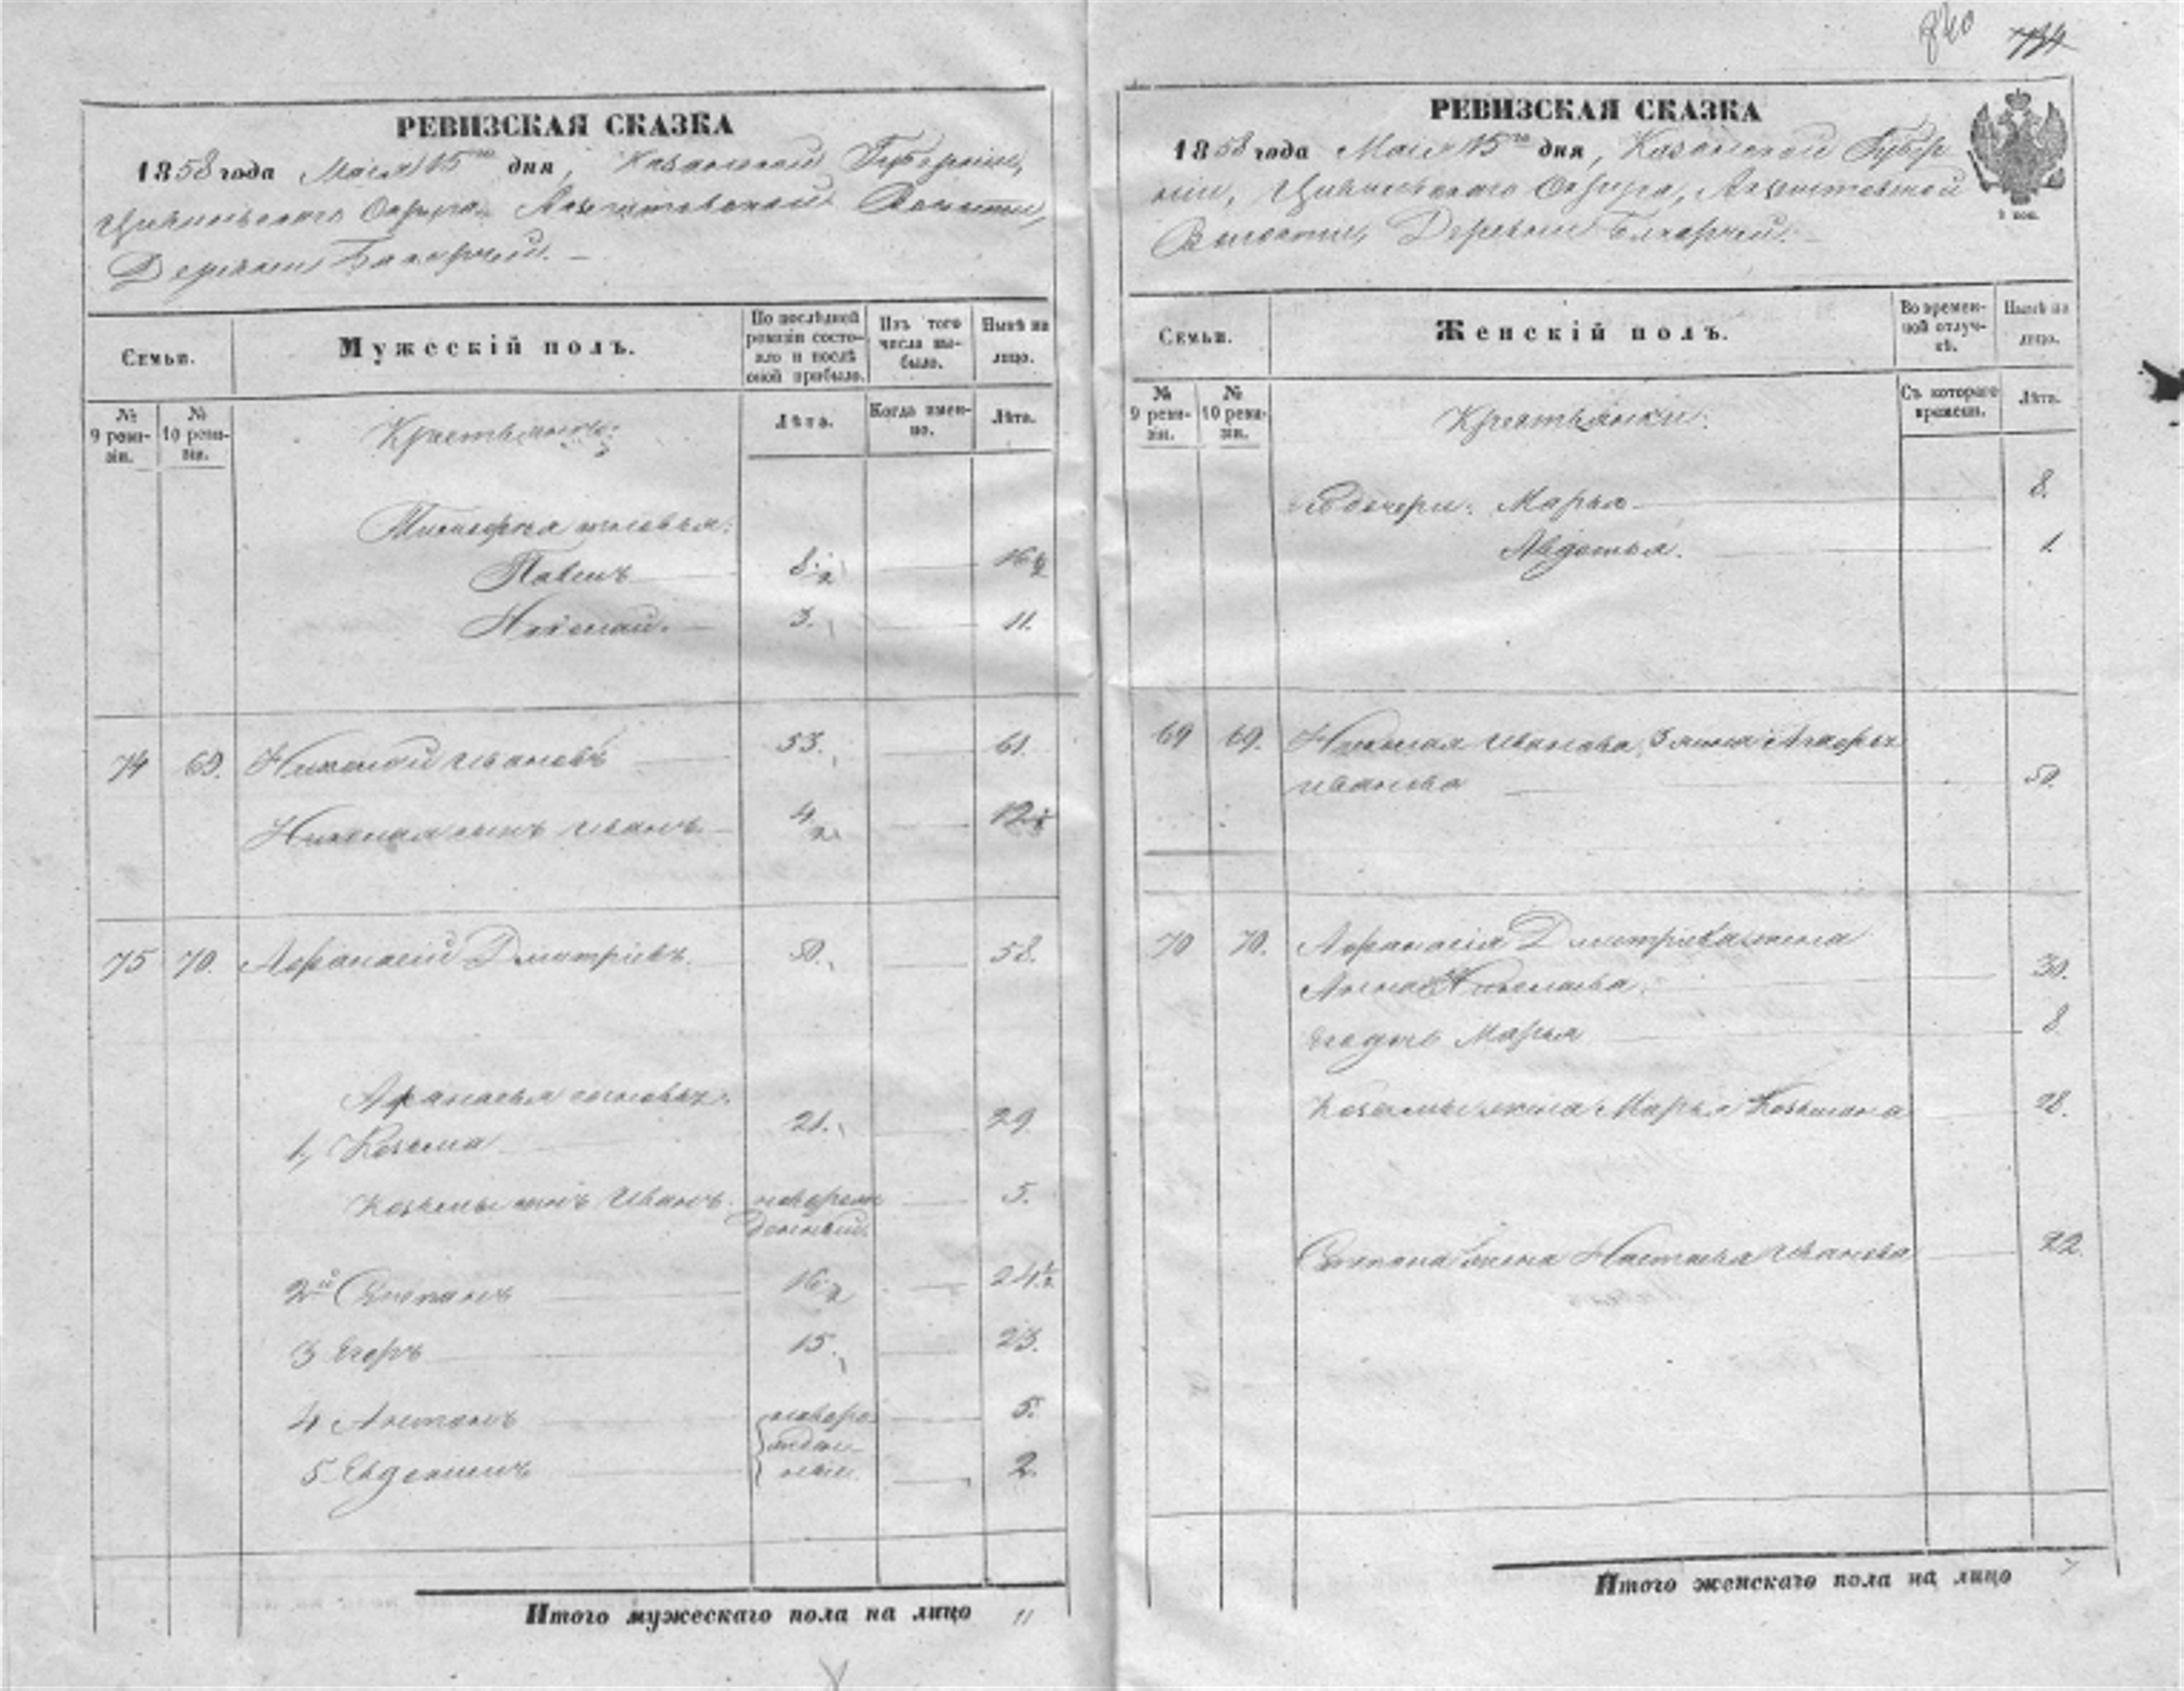 840 734
РЕВИЗСКАЯ СКАЗКА
1858 года Маія 15го дня, Казанской Губерніи,
Цивильскаго Округа, Волости,
Деревни
Семьи.
Мужескій полъ.
По послѣдней ревизіи состояло и послѣ оной прибыло.
Изъ того числа выбыло.
Нынѣ на лицо.
№ 9 ревизіи.
№ 10 ревизіи.
Крестьяне:
Лѣта.
Когда именно.
Лѣта.
сыновья:
Павелъ 8 1/2 16 1/2
Николай. 3. 11.
74 69. Николай Ивановъ 53. 61.
Николая сынъ Иванъ 4 1/2 12 1/2
75 70. Афанасій Дмитріевъ. 50. 58.
Афанасья сыновья:
1, Козьма 21. 29
Козьмы сынъ Иванъ. новорож 5.
денный.
2й Степанъ 16 1/2 24 1/2
3 Егоръ 15. 23.
4 Антонъ новоро 5.
жден
5 Евдокимъ ные 2.
Итого мужескаго пола на лицо 11
РЕВИЗСКАЯ СКАЗКА
1858 года Маія 15го дня, Казанской Губер
ніи, Цивильскаго Округа,
Волости, Деревни
Семьи.
Женскій полъ.
Во временной отлучкѣ.
Нынѣ на лицо.
№ 9 ревизіи.
№ 10 ревизіи.
Крестьянки:
Съ котораго времени.
Лѣта.
дочери: Марья 8.
Авдотья. 1.
69 69. Николая Иванова жена Агафья
Иванова 50.
70 70. Афанасія Дмитріева жена
Анна Николаева. 30.
его дочь Марья 8
Козьмы жена Марья Козьмина 28.
Степана жена Настасья Иванова 22.
Итого женскаго пола на лицо 7